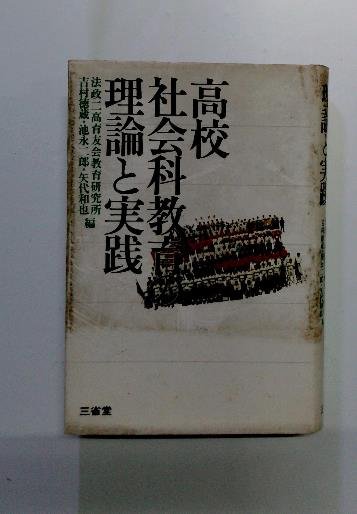 高校
社会科教育の
理論と実践
法政二高育友会教育研究所
吉村徳蔵・池永二郎・矢代和也 編
三省堂
理論と実践